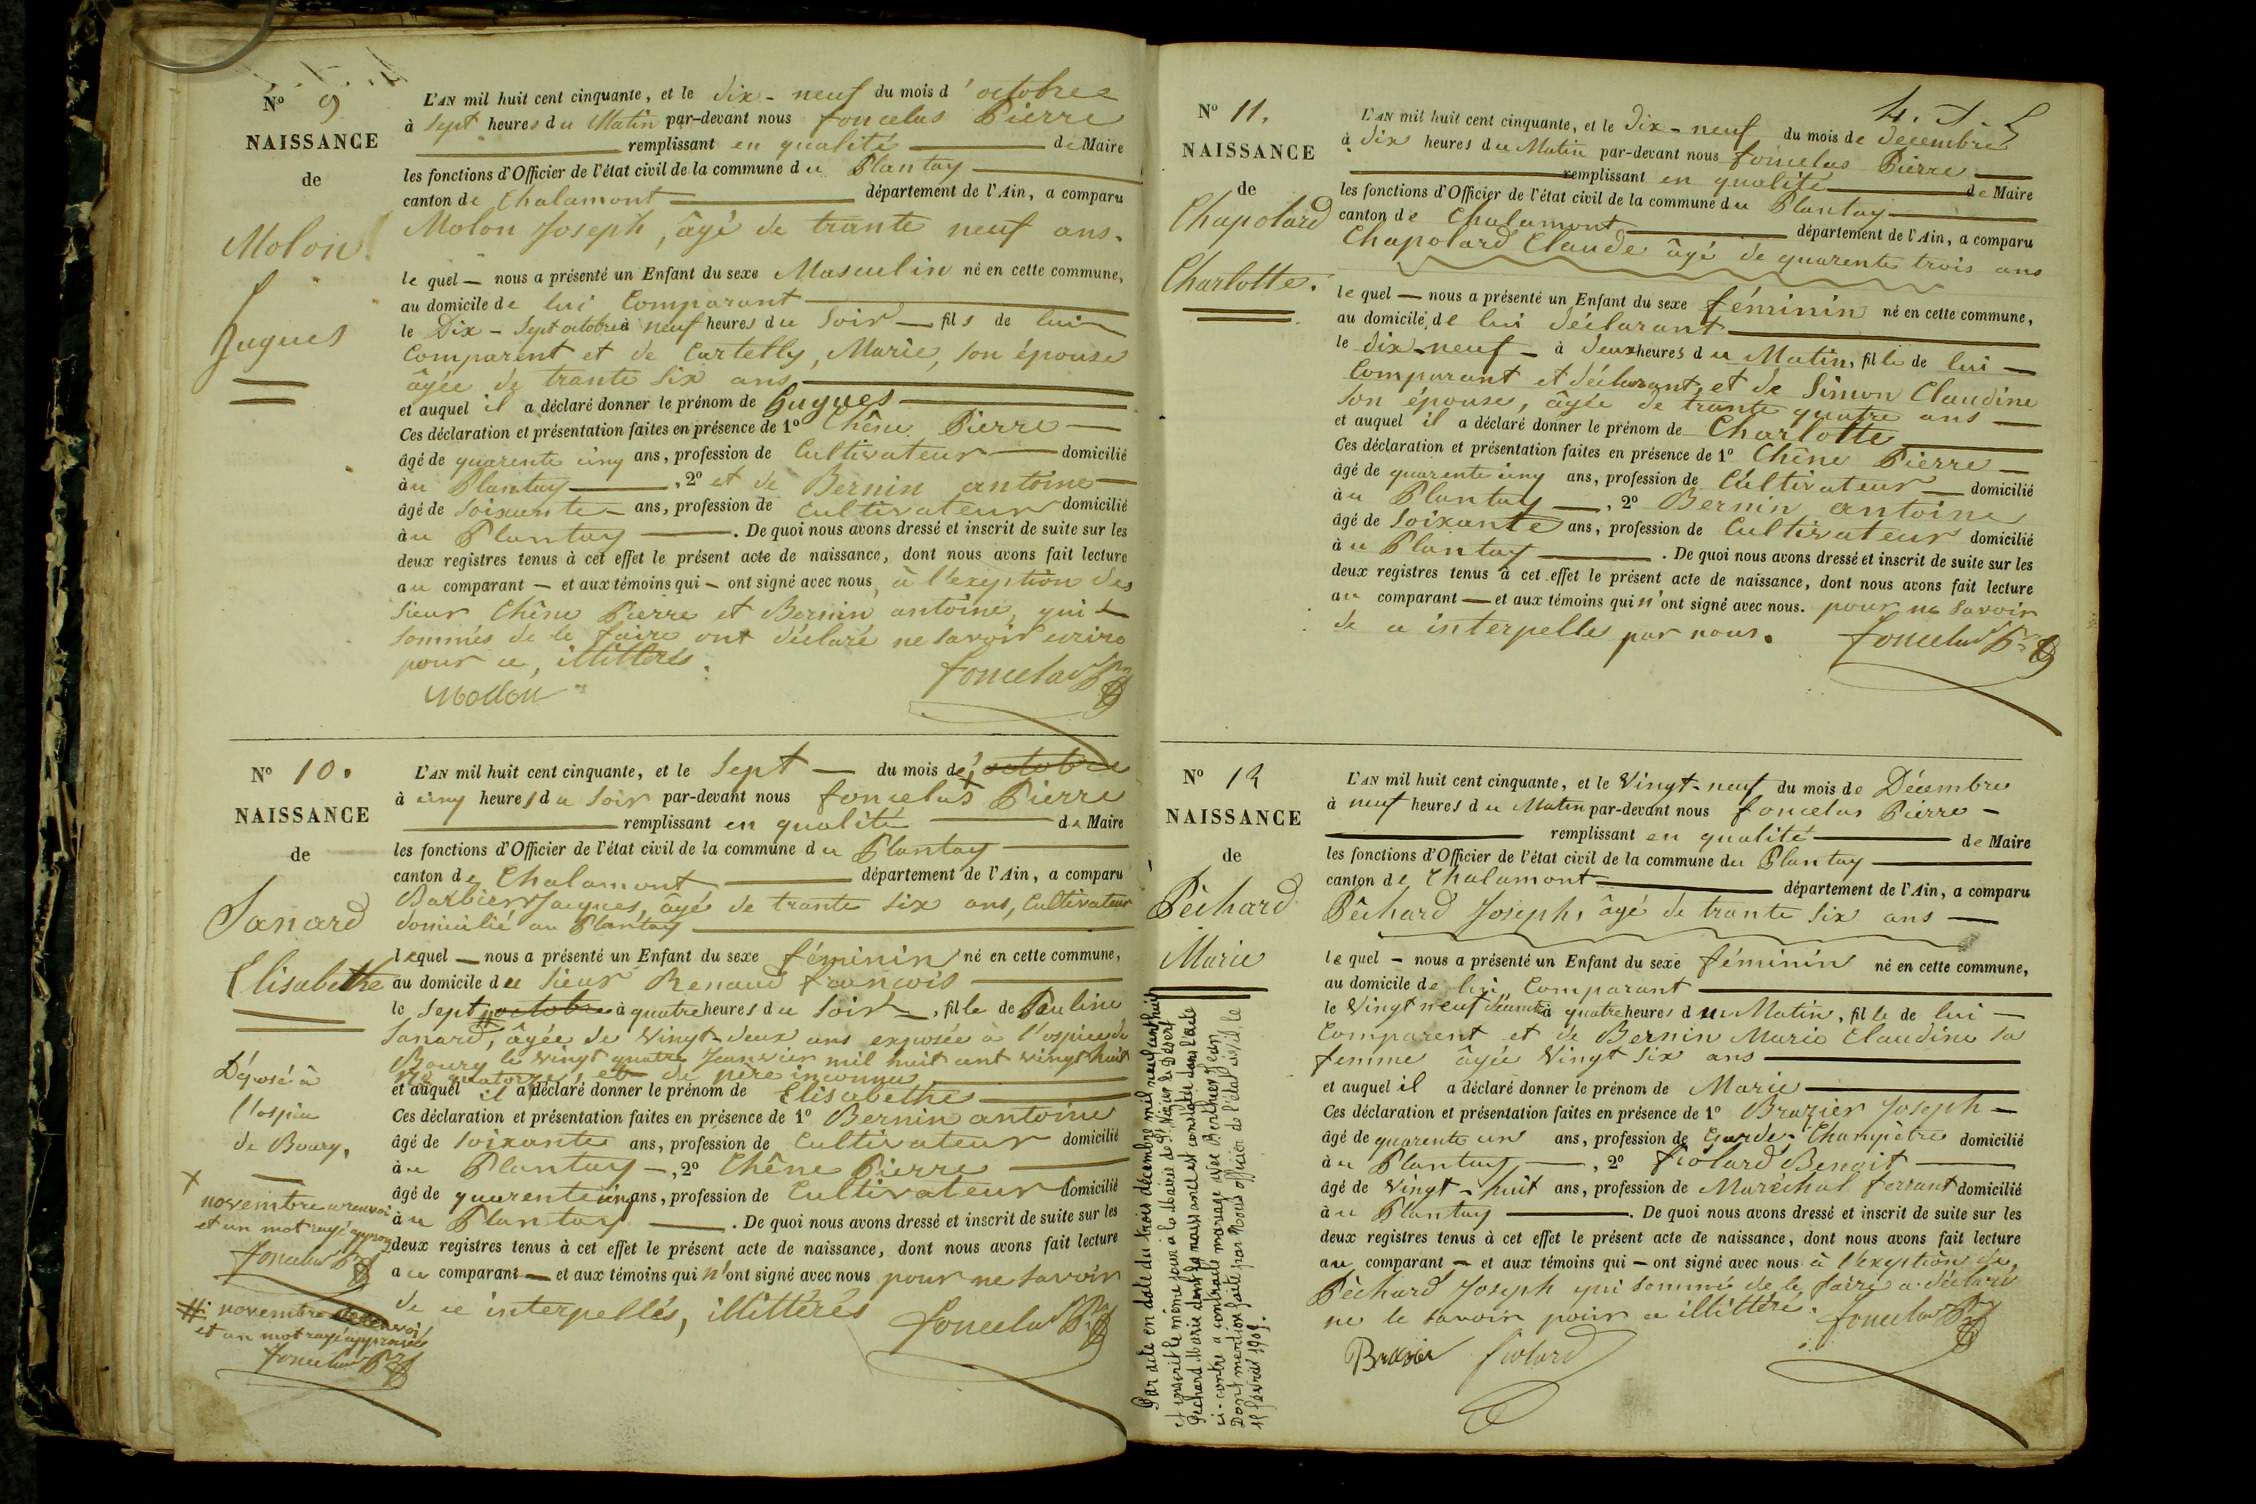 Nº 9
NAISSANCE
de
Molon
Hugues
L'AN mil huit cent cinquante, et le dix-neuf du mois d'octobre
à sept heures du Matin par-devant nous foncelas Pierre
remplissant en qualité de Maire
les fonctions d'Officier de l'état civil de la commune du Plantay
canton de Chalamont département de l'Ain, a comparu
Molon Joseph, âgé de trante neuf ans.
le quel — nous a présenté un Enfant du sexe Masculin né en cette commune,
au domicile de lui Comparant
le Dix-sept octobre à neuf heures du Soir — fils de lui
Comparent et de Curtelly, Marie, son épouse
âgée de trante six ans
et auquel il a déclaré donner le prénom de Hugues
Ces déclaration et présentation faites en présence de 1º Chêne Pierre —
âgé de quarente cinq ans, profession de Cultivateur — domicilié
àu Plantay —, 2º et de Bernin antoine —
âgé de soixante — ans, profession de cultivateur domicilié
àu Plantay —. De quoi nous avons dressé et inscrit de suite sur les
deux registres tenus à cet effet le présent acte de naissance, dont nous avons fait lecture
au comparant — et aux témoins qui — ont signé avec nous, à l'exeption des
sieur Chêne Pierre et Bernin antoine, qui
sommés de le faire ont déclaré ne savoir ecrire
pour ce, illittérés.
Mollon foncelas Pre
Nº 10.
NAISSANCE
de
Sanard
Elisabethe
Déposé à
l'ospice
de Bourg.
X
novembre a renvoi
et un mot rayé approu
foncelas Pre
#: novembre de renvoi
et un mot rayé approuvé
foncelas Pre
L'AN mil huit cent cinquante, et le Sept — du mois d'octobre
à cinq heures du soir par-devant nous foncelas Pierre
remplissant en qualité de Maire
les fonctions d'Officier de l'état civil de la commune du Plantay
canton de Chalamont département de l'Ain, a comparu
Barbier Jacques, âgé de trante six ans, Cultivateur
domicilié au Plantay
lequel — nous a présenté un Enfant du sexe féminin né en cette commune,
au domicile du sieur Renaud françois
le sept octobre à quatre heures du Soir —, fille de Pauline
Sanard, âgée de vingt-deux ans exposée à l'ospice de
Bourg le vingt quatre Jeanvier mil huit cent vingt huit
nº quatorze, et de père inconnu
et auquel il a déclaré donner le prénom de Elisabethe
Ces déclaration et présentation faites en présence de 1º Bernin antoine
âgé de soixante ans, profession de Cultivateur domicilié
àu Plantay —, 2º Chêne Pierre
âgé de quarente cinq ans, profession de Cultivateur domicilié
àu Plantay —. De quoi nous avons dressé et inscrit de suite sur les
deux registres tenus à cet effet le présent acte de naissance, dont nous avons fait lecture
au comparant — et aux témoins qui n'ont signé avec nous pour ne savoir
de ce interpellés, illittérés foncelas Pre
4. 5
Nº 11.
NAISSANCE
de
Chapolard
Charlotte.
L'AN mil huit cent cinquante, et le Dix-neuf du mois de décembre
à dix heures du Matin par-devant nous foncelas Pierre
remplissant en qualité de Maire
les fonctions d'Officier de l'état civil de la commune du Plantay
canton de Chalamont département de l'Ain, a comparu
Chapolard Claude âgé de quarente trois ans
le quel — nous a présenté un Enfant du sexe féminin né en cette commune,
au domicile de lui déclarant
le dix-neuf — à deux heures du Matin, fille de lui —
Comparant et déclarant, et de Simon Claudine
son épouse, âgée de trante quatre ans —
et auquel il a déclaré donner le prénom de Charlotte
Ces déclaration et présentation faites en présence de 1º Chêne Pierre —
âgé de quarente cinq ans, profession de Cultivateur — domicilié
àu Plantay —, 2º Bernin antoine
âgé de soixante ans, profession de Cultivateur domicilié
àu Plantay —. De quoi nous avons dressé et inscrit de suite sur les
deux registres tenus à cet effet le présent acte de naissance, dont nous avons fait lecture
au comparant — et aux témoins qui n'ont signé avec nous. pour ne savoir
de ce interpelles par nous. foncelas Pre
Nº 12
NAISSANCE
de
Pêchard
Marie
Par acte en date du trois décembre mil neuf cent huit
et inscrit le même jour à la Mairie de St Nizier le Désert
Pechard Marie dont la naissance est constatée dans l'acte
ci-contre a contracté mariage avec Berthier Jean
Dont mention faite par Nous officier de l'état civil, le
15 février 1909.
L'AN mil huit cent cinquante, et le Vingt-neuf du mois de Décembre
à neuf heures du Matin par-devant nous foncelas Pierre —
remplissant en qualité de Maire
les fonctions d'Officier de l'état civil de la commune du Plantay
canton de Chalamont département de l'Ain, a comparu
Pêchard Joseph, âgé de trante six ans —
le quel — nous a présenté un Enfant du sexe féminin né en cette commune,
au domicile de lui Comparant
le Vingt neuf décembre à quatre heures du Matin, fille de lui —
Comparent et de Bernin Marie Claudine sa
femme âgée Vingt six ans
et auquel il a déclaré donner le prénom de Marie
Ces déclaration et présentation faites en présence de 1º Brazier Joseph —
âgé de quarente un ans, profession de Garde-Champètre domicilié
àu Plantay —, 2º fiolard Benoit
âgé de vingt-huit ans, profession de Maréchal ferrant domicilié
àu Plantay —. De quoi nous avons dressé et inscrit de suite sur les
deux registres tenus à cet effet le présent acte de naissance, dont nous avons fait lecture
au comparant — et aux témoins qui — ont signé avec nous à l'exeption du
Pêchard Joseph qui sommé de le faire a déclaré
ne le savoir pour ce illittéré. foncelas Pre
Brasier fiolard